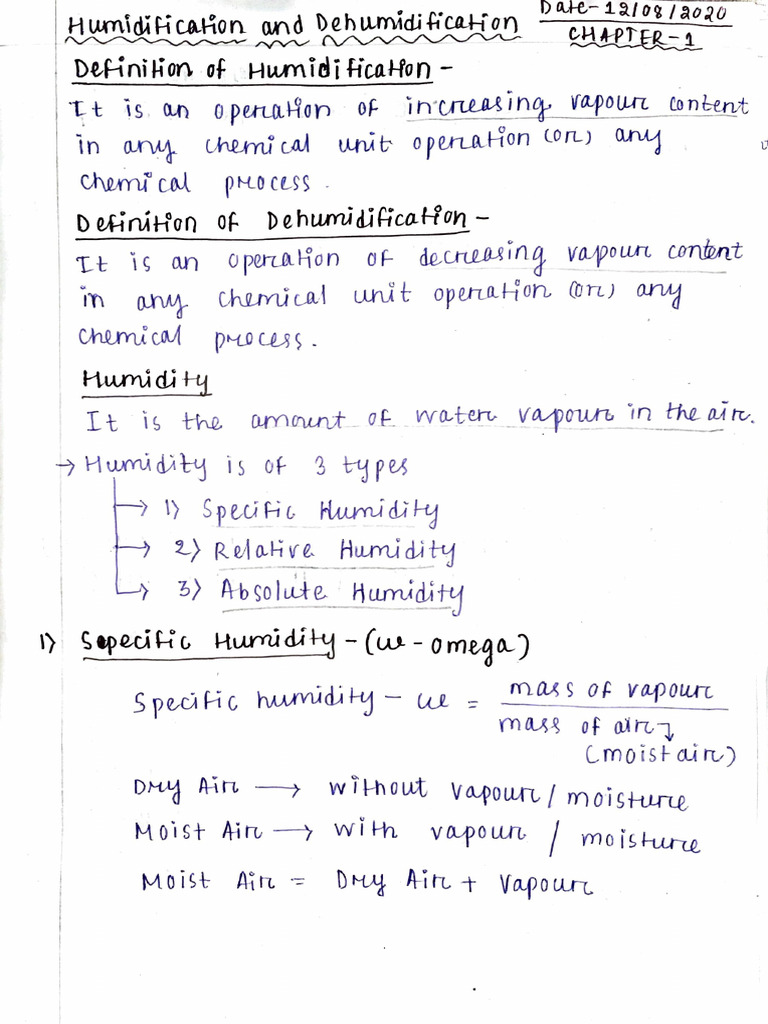 Humidification and Dehumidification
Date-12/08/2020
CHAPTER-1
Definition of Humidification -
It is an operation of increasing vapour content
in any chemical unit operation (or) any
chemical process.
Definition of Dehumidification -
It is an operation of decreasing vapour content
in any chemical unit operation (or) any
chemical process.
Humidity
It is the amount of water vapour in the air.
→ Humidity is of 3 types
→ 1) Specific Humidity
→ 2) Relative Humidity
→ 3) Absolute Humidity
1) Specific Humidity - (ω - omega)
Specific humidity - ω = mass of vapour
mass of air
(moist air)
Dry Air → without vapour / moisture
Moist Air → with vapour / moisture
Moist Air = Dry Air + Vapour